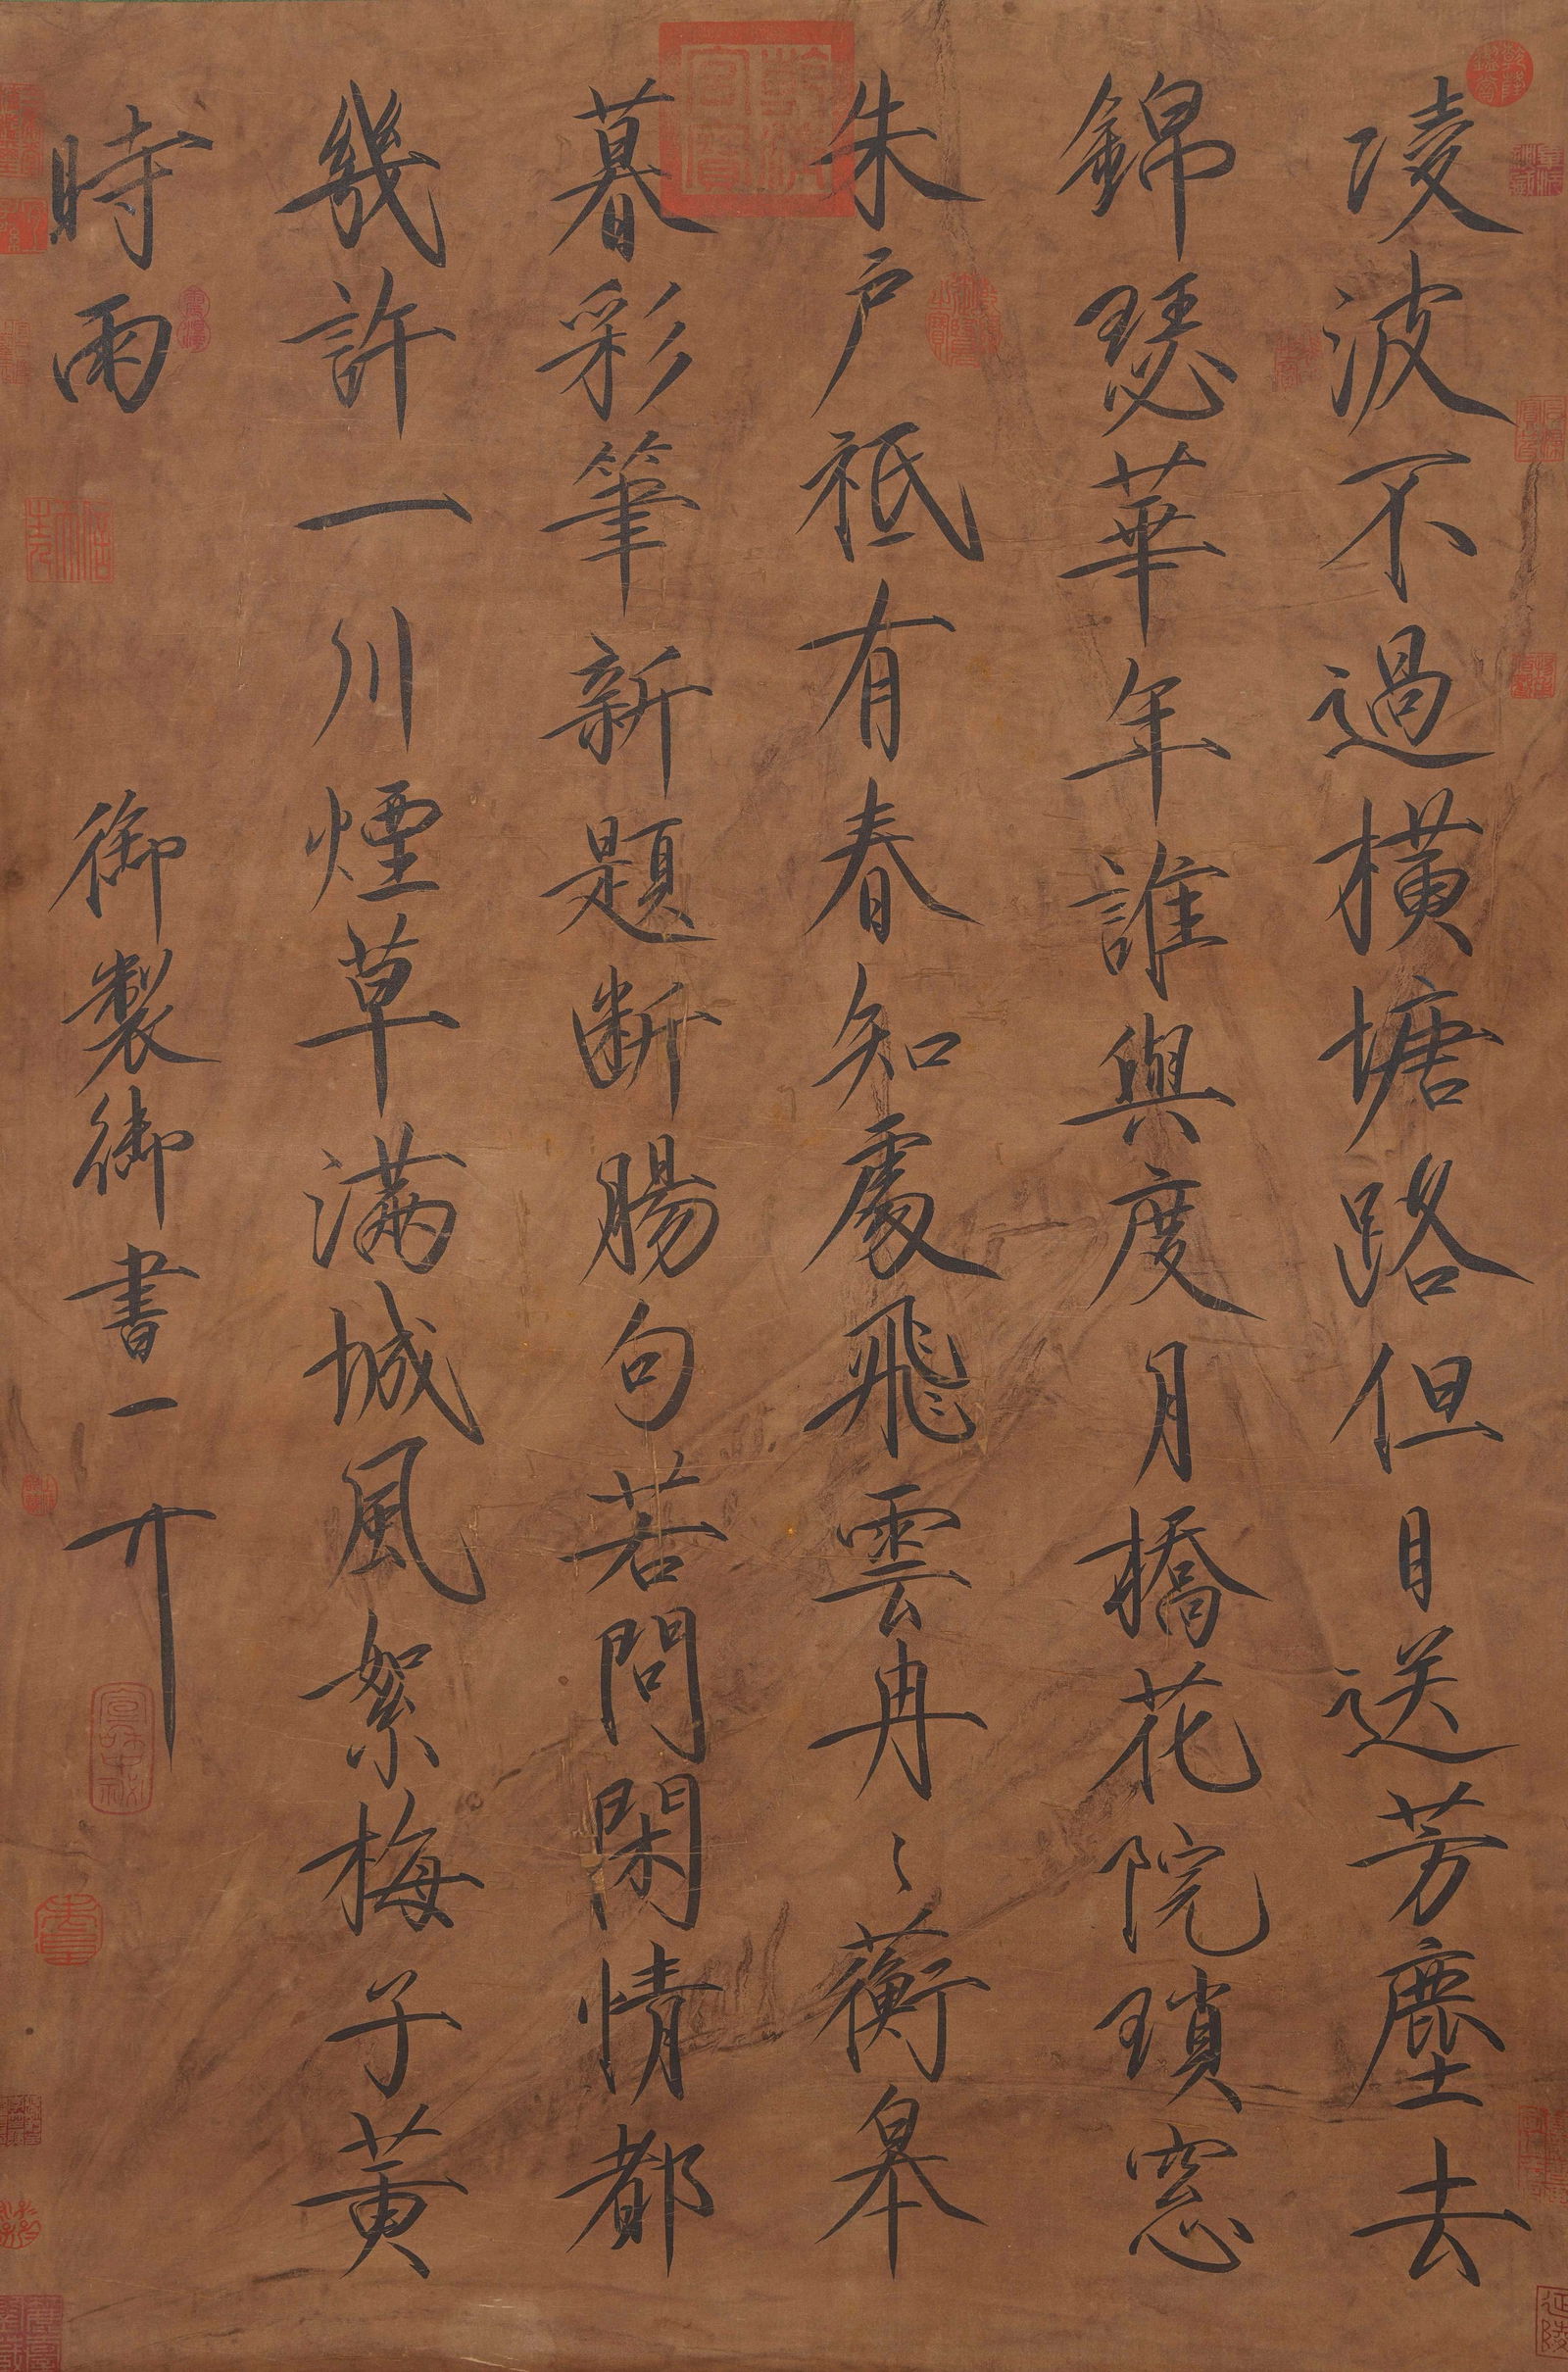 淩波不過橫塘路但目送芳塵去
錦瑟華年誰與度月橋花院瑣窓
朱戶祗有春知處飛雲冉〻蘅皋
暮彩筆新題断腸句若問閑情都
幾許一川煙草滿城風絮梅子黃
時雨
御製御書一